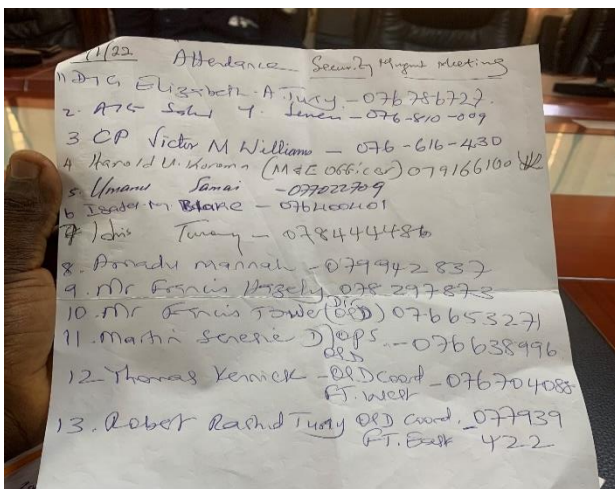 /1/22 Attendance Security Mngmt Meeting
1) DIG Elizabeth. A Turay. - 076786727.
2. AIG Y. - 076-810-009
3 CP Victor M Williams - 076-616-430
4 Harold U. Koroma (M&E Officer) 079166100
5. Umaru Samai - 077022709
6 M. Blake - 076400401
7 Idris Turay - 078444486
8. Amadu Mannah - 079942837
9. Mr Francis 078297873
10. Mr Francis Tower (Dir OSD) 076653271
11. Martin D/OPS OSD - 076638996
12 Thomas Kennick - OSD Coord - 076704088
FT. West
13. Robert Rashid Turay OSD Coord. - 077939
FT. East 422